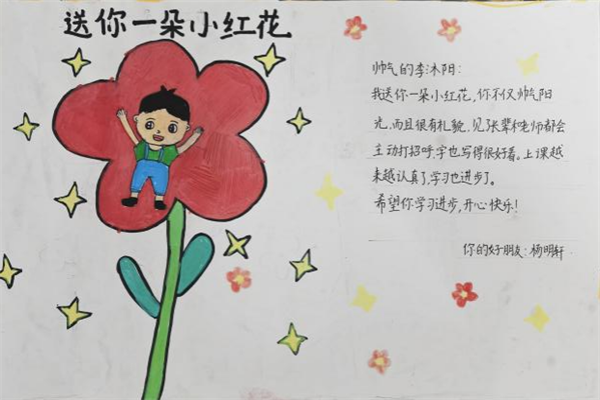 送你一朵小红花
帅气的李沐阳：
我送你一朵小红花，你不仅帅气阳
光，而且很有礼貌，见张辈和老师都会
主动打招呼，字也写得很好看。上课越
来越认真了，学习也进步了。
希望你学习进步，开心快乐！
你的好朋友：杨明轩